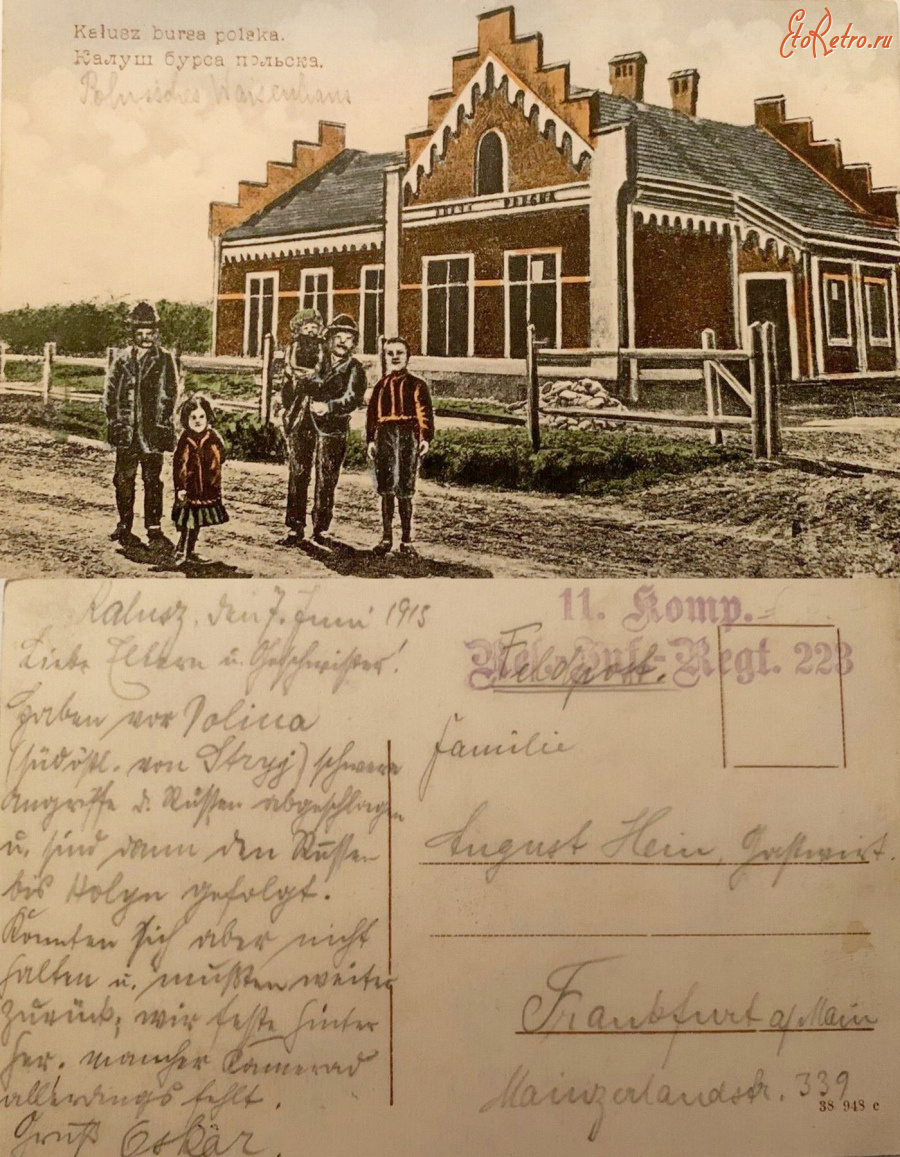 Kałusz bursa polska.
Калуш бурса польска.
Polnisches Waisenhaus
EtoRetro.ru
BURSA POLSKA
Kalusz, den 7. Juni 1915
Liebe Eltern u. Geschwister!
Haben vor Dolina
(südöstl. von Stryj) schwere
Angriffe d. Russen abgeschlagen
u. sind dann den Russen
bis Holyn gefolgt.
Konnten sich aber nicht
halten u. mußten weiter
zurück; wir feste hinter
her. Mancher Kamerad
allerdings fehlt.
Gruß Oskar
11. Komp.
Res.-Inf.-Regt. 223
Feldpost.
Familie
August Hein, Gastwirt.
Frankfurt a/Main
Mainzerlandstr. 339
38 948 c